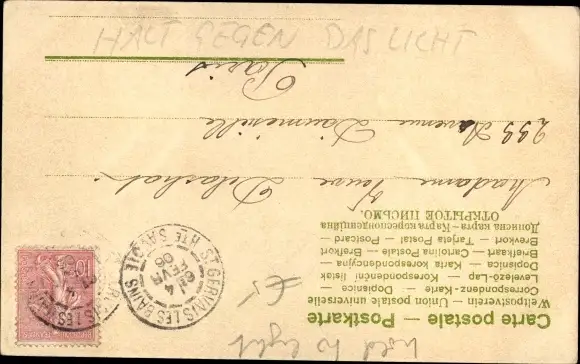 HALT GEGEN DAS LICHT
Carte postale — Postkarte
Weltpostverein — Union postale universelle
Correspondenz-Karte — Dopisnice —
Levelező-Lap — Korespondenční lístek
Dopisnica — Karta korespondencyjna
Brefkaart — Cartolina Postale — Brefkort
Brevkort — Tarjeta Postal — Postcard
Дописна карта — Карта кореспонденційна
ОТКРЫТОЕ ПИСЬМО.
Madame Veuve Delachat
299 Avenue Daumesnil
Paris
ST GERVAIS LES BAINS
HTE SAVOIE
4
FEVR
06
10
hold to light